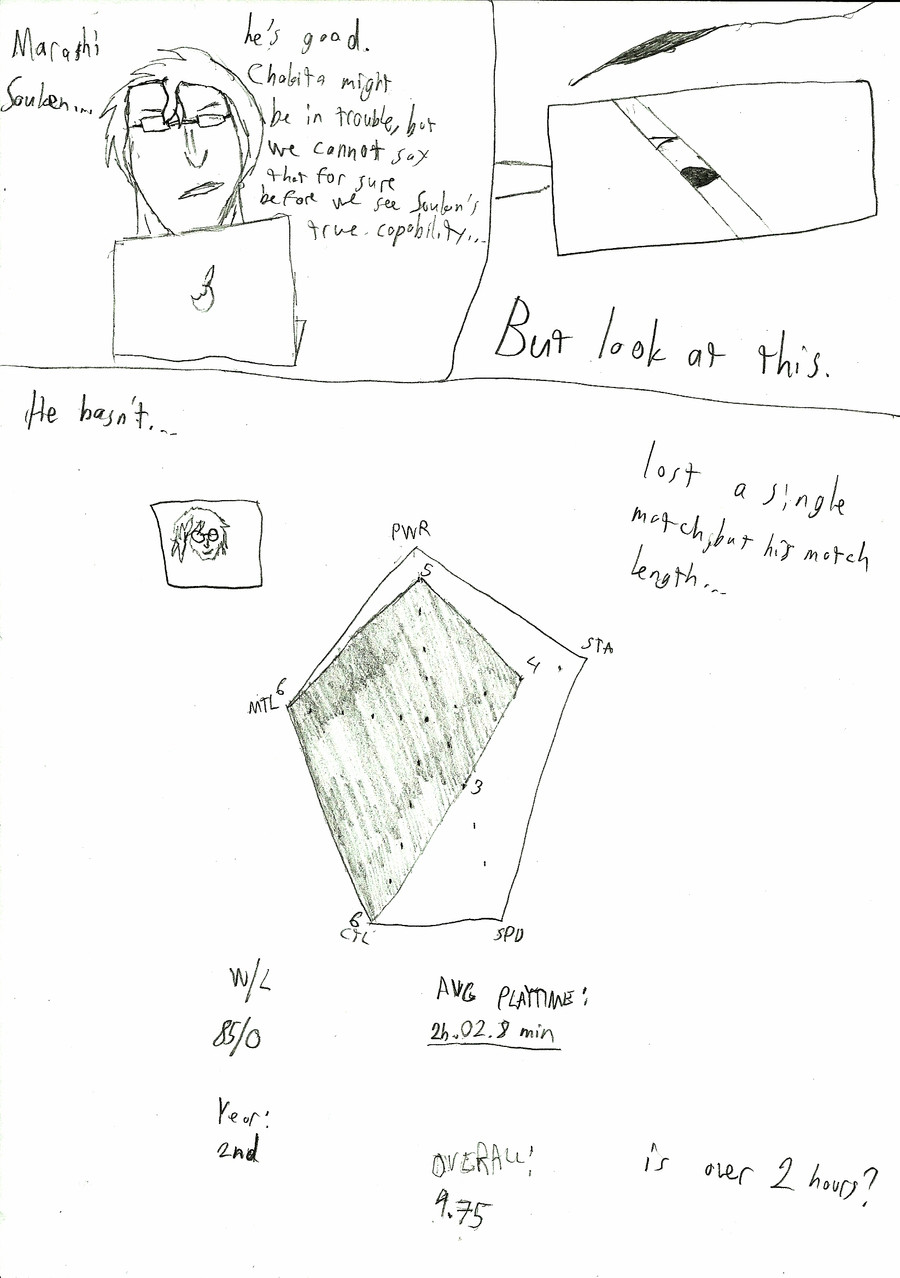 Marashi
Soulen...
he's good.
Chobita might
be in trouble, but
we cannot say
that for sure
before we see Soulen's
true capability...
7
But look at this.
He hasn't...
lost a single
match, but his match
length...
PWR
5
STA
4
MTL 6
3
6
CTL
SPD
W/L
85/0
AVG PLAYTIME:
2h.02.8 min
Year:
2nd
OVERALL:
4.75
is over 2 hours?